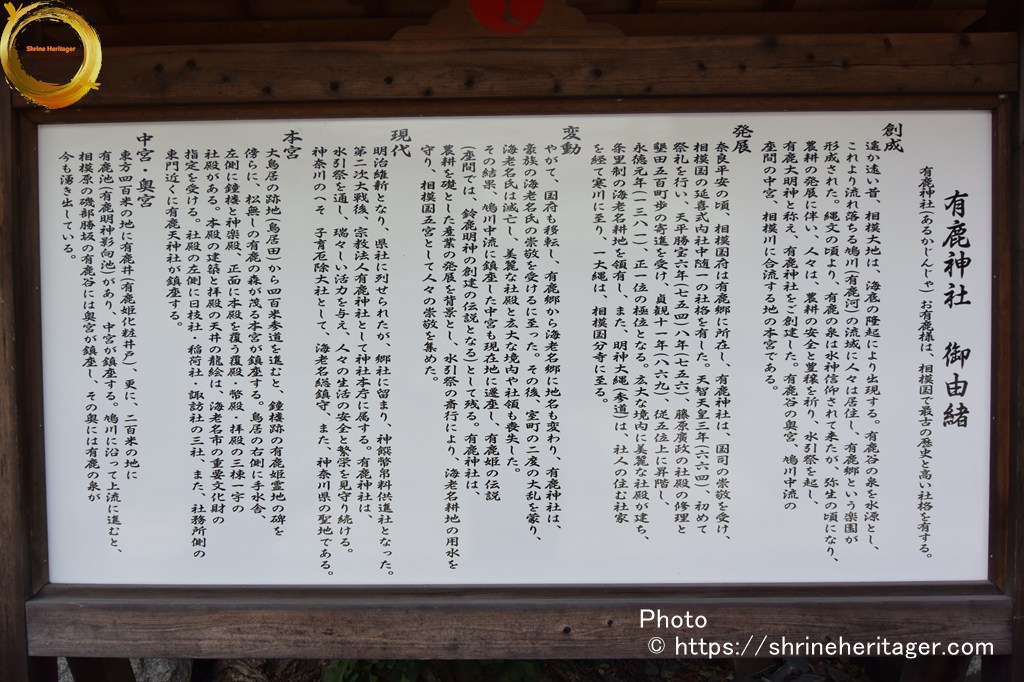 有鹿神社 御由緒
有鹿神社(あるかじんじゃ)お有鹿様は、相模国で最古の歴史と高い社格を有する。
創成
遥か遠い昔、相模大地は、海底の隆起により出現する。有鹿谷の泉を水源とし、
これより流れ落ちる鳩川(有鹿河)の流域に人々は居住し、有鹿郷という楽園が
形成された。縄文の頃より、有鹿の泉は水神信仰されて来たが、弥生の頃になり、
農耕の発展に伴い、人々は、農耕の安全と豊穣を祈り、水引祭を起し、
有鹿大明神と称え、有鹿神社をご創建した。有鹿谷の奥宮、鳩川中流の
座間の中宮、相模川に合流する地の本宮である。
発展
奈良平安の頃、相模国府は有鹿郷に所在し、有鹿神社は、国司の崇敬を受け、
相模国の延喜式内社中随一の社格を有した。天智天皇三年(六六四)、初めて
祭礼を行い、天平勝宝六年(七五四)八年(七五六)、藤原廣政の社殿の修理と
墾田五百町歩の寄進を受け、貞観十一年(八六九)、従五位上に昇階し、
永徳元年(一三八一)、正一位の極位となる。広大な境内に美麗な社殿が建ち、
条里制の海老名耕地を領有し、また、明神大縄(参道)は、社人の住む社家
を経て寒川に至り、一大縄は、相模国分寺に至る。
変動
やがて、国府も移転し、有鹿郷から海老名郷に地名も変わり、有鹿神社は、
豪族の海老名氏の崇敬を受けるに至った。その後、室町の二度の大乱を蒙り、
海老名氏は滅亡し、美麗な社殿と広大な境内や社領も喪失した。
その結果、鳩川中流に鎮座した中宮も現在地に遷座し、有鹿姫の伝説
(座間では、鈴鹿明神の創建の伝説となる)として残る。有鹿神社は、
農耕を礎とした産業の発展を背景とし、水引祭の斎行により、海老名耕地の用水を
守り、相模国五宮として人々の崇敬を集めた。
現代
明治維新となり、県社に列せられたが、郷社に留まり、神饌幣帛料供進社となった。
第二次大戦後、宗教法人有鹿神社として神社本庁に属する。有鹿神社は、
水引祭を通し、瑞々しい活力を与え、人々の生活の安全と繁栄を見守り続ける。
神奈川のへそ 子育厄除大社として、海老名総鎮守、また、神奈川県の聖地である。
本宮
大鳥居の跡地(鳥居田)から四百米参道を進むと、鐘楼跡の有鹿姫霊地の碑を
傍らに、松無しの有鹿の森が茂る本宮が鎮座する。鳥居の右側に手水舎、
左側に鐘楼と神楽殿、正面に本殿を覆う覆殿・幣殿・拝殿の三棟一宇の
社殿がある。本殿の建築と拝殿の天井の龍絵は、海老名市の重要文化財の
指定を受ける。社殿の左側に日枝社・稲荷社・諏訪社の三社、また、社務所側の
東門近くに有鹿天神社が鎮座する。
中宮・奥宮
東方四百米の地に有鹿井(有鹿姫化粧井戸)、更に、二百米の地に
有鹿池(有鹿明神影向池)があり、中宮が鎮座する。鳩川に沿って上流に進むと、
相模原の磯部勝坂の有鹿谷には奥宮が鎮座し、その奥には有鹿の泉が
今も湧き出している。
Shrine Heritager
Photo
© https://shrineheritager.com